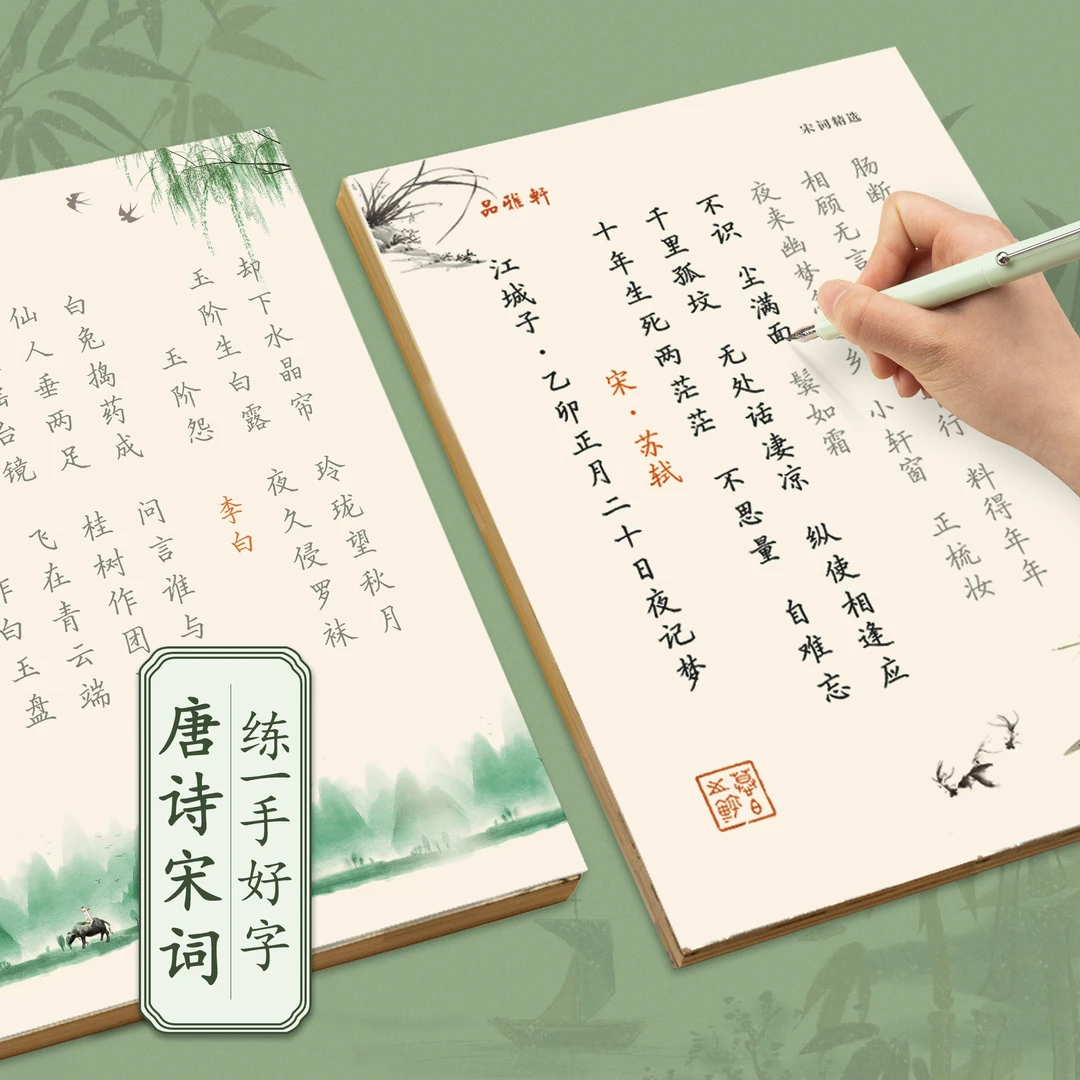 作白玉盘
台镜 飞在青云端
仙人垂两足 桂树作团
白兔捣药成 问言谁与
玉阶怨
李白
玉阶生白露 夜久侵罗袜
却下水晶帘 玲珑望秋月
品雅軒
宋词精选
江城子·乙卯正月二十日夜记梦
宋·苏轼
十年生死两茫茫 不思量 自难忘
千里孤坟 无处话凄凉 纵使相逢应
不识 尘满面 鬓如霜
夜来幽梦 乡 小轩窗 正梳妆
相顾无言 行 料得年年
肠断
练一手好字
唐诗宋词